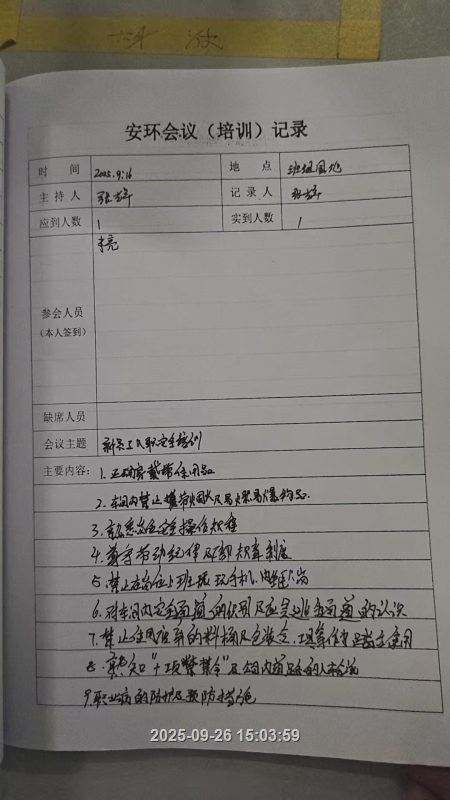 安环会议（培训）记录
时 间 2025.9.16 地 点 班组园地
主 持 人 张 记 录 人 张
应到人数 1 实到人数 1
参会人员
（本人签到）
李亮
缺席人员
会议主题 新员工入职安全培训
主要内容：1.正确穿戴劳保用品
2.车间内禁止携带烟火及易燃易爆物品.
3.熟悉岗位安全操作规程
4.遵守劳动纪律及各部规章制度
5.禁止在岗位上班玩手机、睡岗
6.对车间内安全通道的识别及应急逃生通道的认识
7.禁止使用废弃的料桶及包装
8.熟知"十项禁令"及车间内道路的人
9.职业病的防护及预防措施
2025-09-26 15:03:59